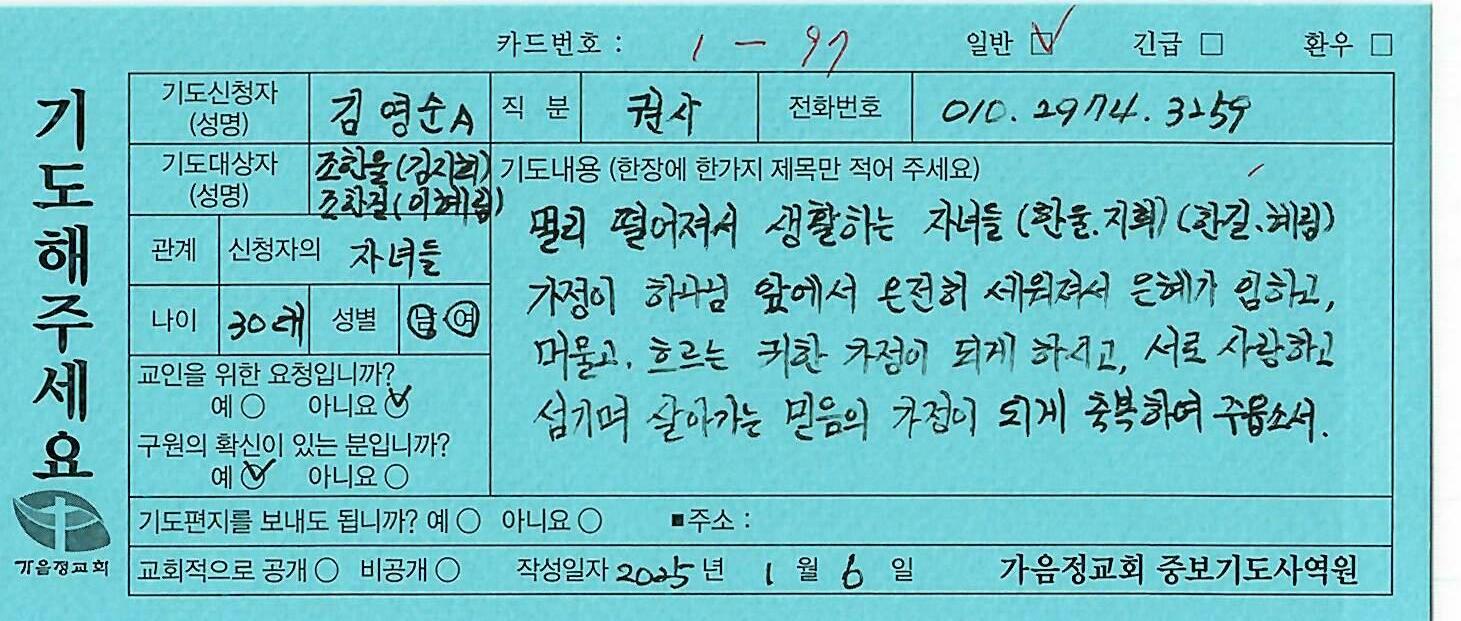 기도해주세요
가음정교회
카드번호 : 1 - 97 일반 ☑ 긴급 □ 환우 □
기도신청자 (성명) 김영순A 직 분 권사 전화번호 010. 2974. 3259
기도대상자 (성명) 조한울(김지희) 조한길(이혜림)
관계 신청자의 자녀들
나이 30대 성별 남 여
교인을 위한 요청입니까?
예 ○ 아니요 ✓
구원의 확신이 있는 분입니까?
예 ✓ 아니요 ○
기도내용 (한장에 한가지 제목만 적어 주세요)
멀리 떨어져서 생활하는 자녀들 (한울.지희) (한길.혜림)
가정이 하나님 앞에서 온전히 세워져서 은혜가 임하고,
머물고. 흐르는 귀한 가정이 되게 하시고, 서로 사랑하고
섬기며 살아가는 믿음의 가정이 되게 축복하여 주옵소서.
기도편지를 보내도 됩니까? 예 ○ 아니요 ○ ■주소 :
교회적으로 공개 ○ 비공개 ○ 작성일자 2025 년 1 월 6 일 가음정교회 중보기도사역원